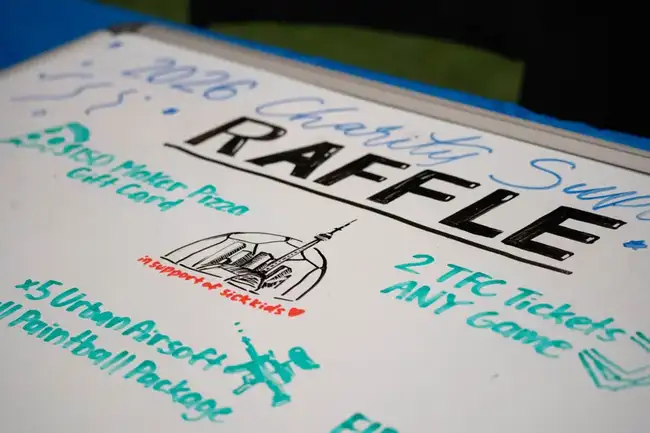 2026 Charity
RAFFLE
$150 Maker Pizza
Gift Card
in support of sickkids
2 TFC Tickets
ANY Game
x5 Urban Airsoft
Paintball Package